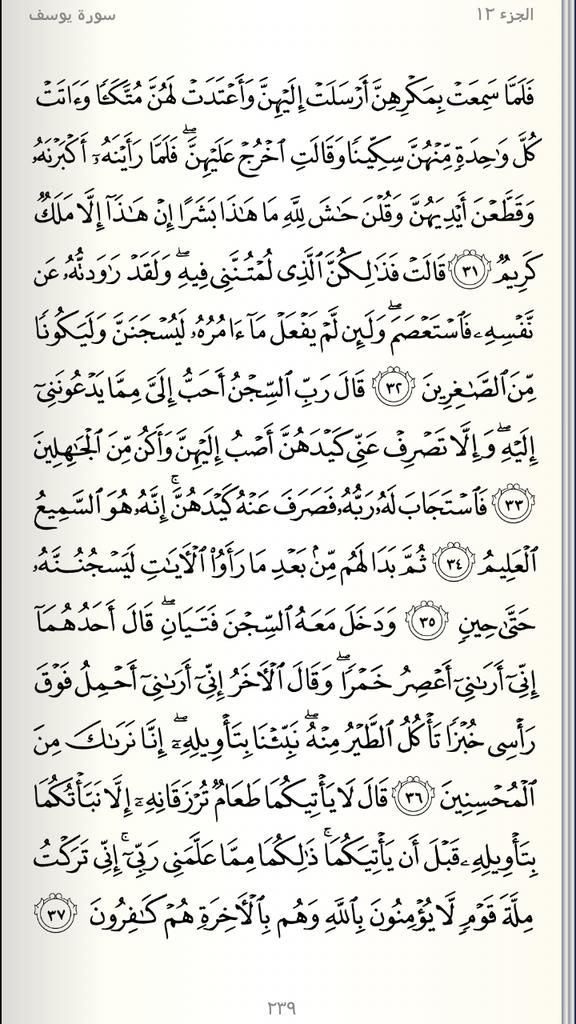 سورة يوسف الجزء ١٢
فَلَمَّا سَمِعَتْ بِمَكْرِهِنَّ أَرْسَلَتْ إِلَيْهِنَّ وَأَعْتَدَتْ لَهُنَّ مُتَّكَـًٔا وَءَاتَتْ
كُلَّ وَٰحِدَةٍ مِّنْهُنَّ سِكِّينًا وَقَالَتِ ٱخْرُجْ عَلَيْهِنَّ ۖ فَلَمَّا رَأَيْنَهُۥٓ أَكْبَرْنَهُۥ
وَقَطَّعْنَ أَيْدِيَهُنَّ وَقُلْنَ حَٰشَ لِلَّهِ مَا هَٰذَا بَشَرًا إِنْ هَٰذَآ إِلَّا مَلَكٌ
كَرِيمٌ ٣١ قَالَتْ فَذَٰلِكُنَّ ٱلَّذِى لُمْتُنَّنِى فِيهِ ۖ وَلَقَدْ رَٰوَدتُّهُۥ عَن
نَّفْسِهِۦ فَٱسْتَعْصَمَ ۖ وَلَئِن لَّمْ يَفْعَلْ مَآ ءَامُرُهُۥ لَيُسْجَنَنَّ وَلَيَكُونًا
مِّنَ ٱلصَّٰغِرِينَ ٣٢ قَالَ رَبِّ ٱلسِّجْنُ أَحَبُّ إِلَىَّ مِمَّا يَدْعُونَنِىٓ
إِلَيْهِ ۖ وَإِلَّا تَصْرِفْ عَنِّى كَيْدَهُنَّ أَصْبُ إِلَيْهِنَّ وَأَكُن مِّنَ ٱلْجَٰهِلِينَ
٣٣ فَٱسْتَجَابَ لَهُۥ رَبُّهُۥ فَصَرَفَ عَنْهُ كَيْدَهُنَّ ۚ إِنَّهُۥ هُوَ ٱلسَّمِيعُ
ٱلْعَلِيمُ ٣٤ ثُمَّ بَدَا لَهُم مِّنۢ بَعْدِ مَا رَأَوُا۟ ٱلْءَايَٰتِ لَيَسْجُنُنَّهُۥ
حَتَّىٰ حِينٍ ٣٥ وَدَخَلَ مَعَهُ ٱلسِّجْنَ فَتَيَانِ ۖ قَالَ أَحَدُهُمَآ
إِنِّىٓ أَرَىٰنِىٓ أَعْصِرُ خَمْرًا ۖ وَقَالَ ٱلْءَاخَرُ إِنِّىٓ أَرَىٰنِىٓ أَحْمِلُ فَوْقَ
رَأْسِى خُبْزًا تَأْكُلُ ٱلطَّيْرُ مِنْهُ ۖ نَبِّئْنَا بِتَأْوِيلِهِۦٓ ۖ إِنَّا نَرَىٰكَ مِنَ
ٱلْمُحْسِنِينَ ٣٦ قَالَ لَا يَأْتِيكُمَا طَعَامٌ تُرْزَقَانِهِۦٓ إِلَّا نَبَّأْتُكُمَا
بِتَأْوِيلِهِۦ قَبْلَ أَن يَأْتِيَكُمَا ۚ ذَٰلِكُمَا مِمَّا عَلَّمَنِى رَبِّىٓ ۚ إِنِّى تَرَكْتُ
مِلَّةَ قَوْمٍ لَّا يُؤْمِنُونَ بِٱللَّهِ وَهُم بِٱلْءَاخِرَةِ هُمْ كَٰفِرُونَ ٣٧
٢٣٩